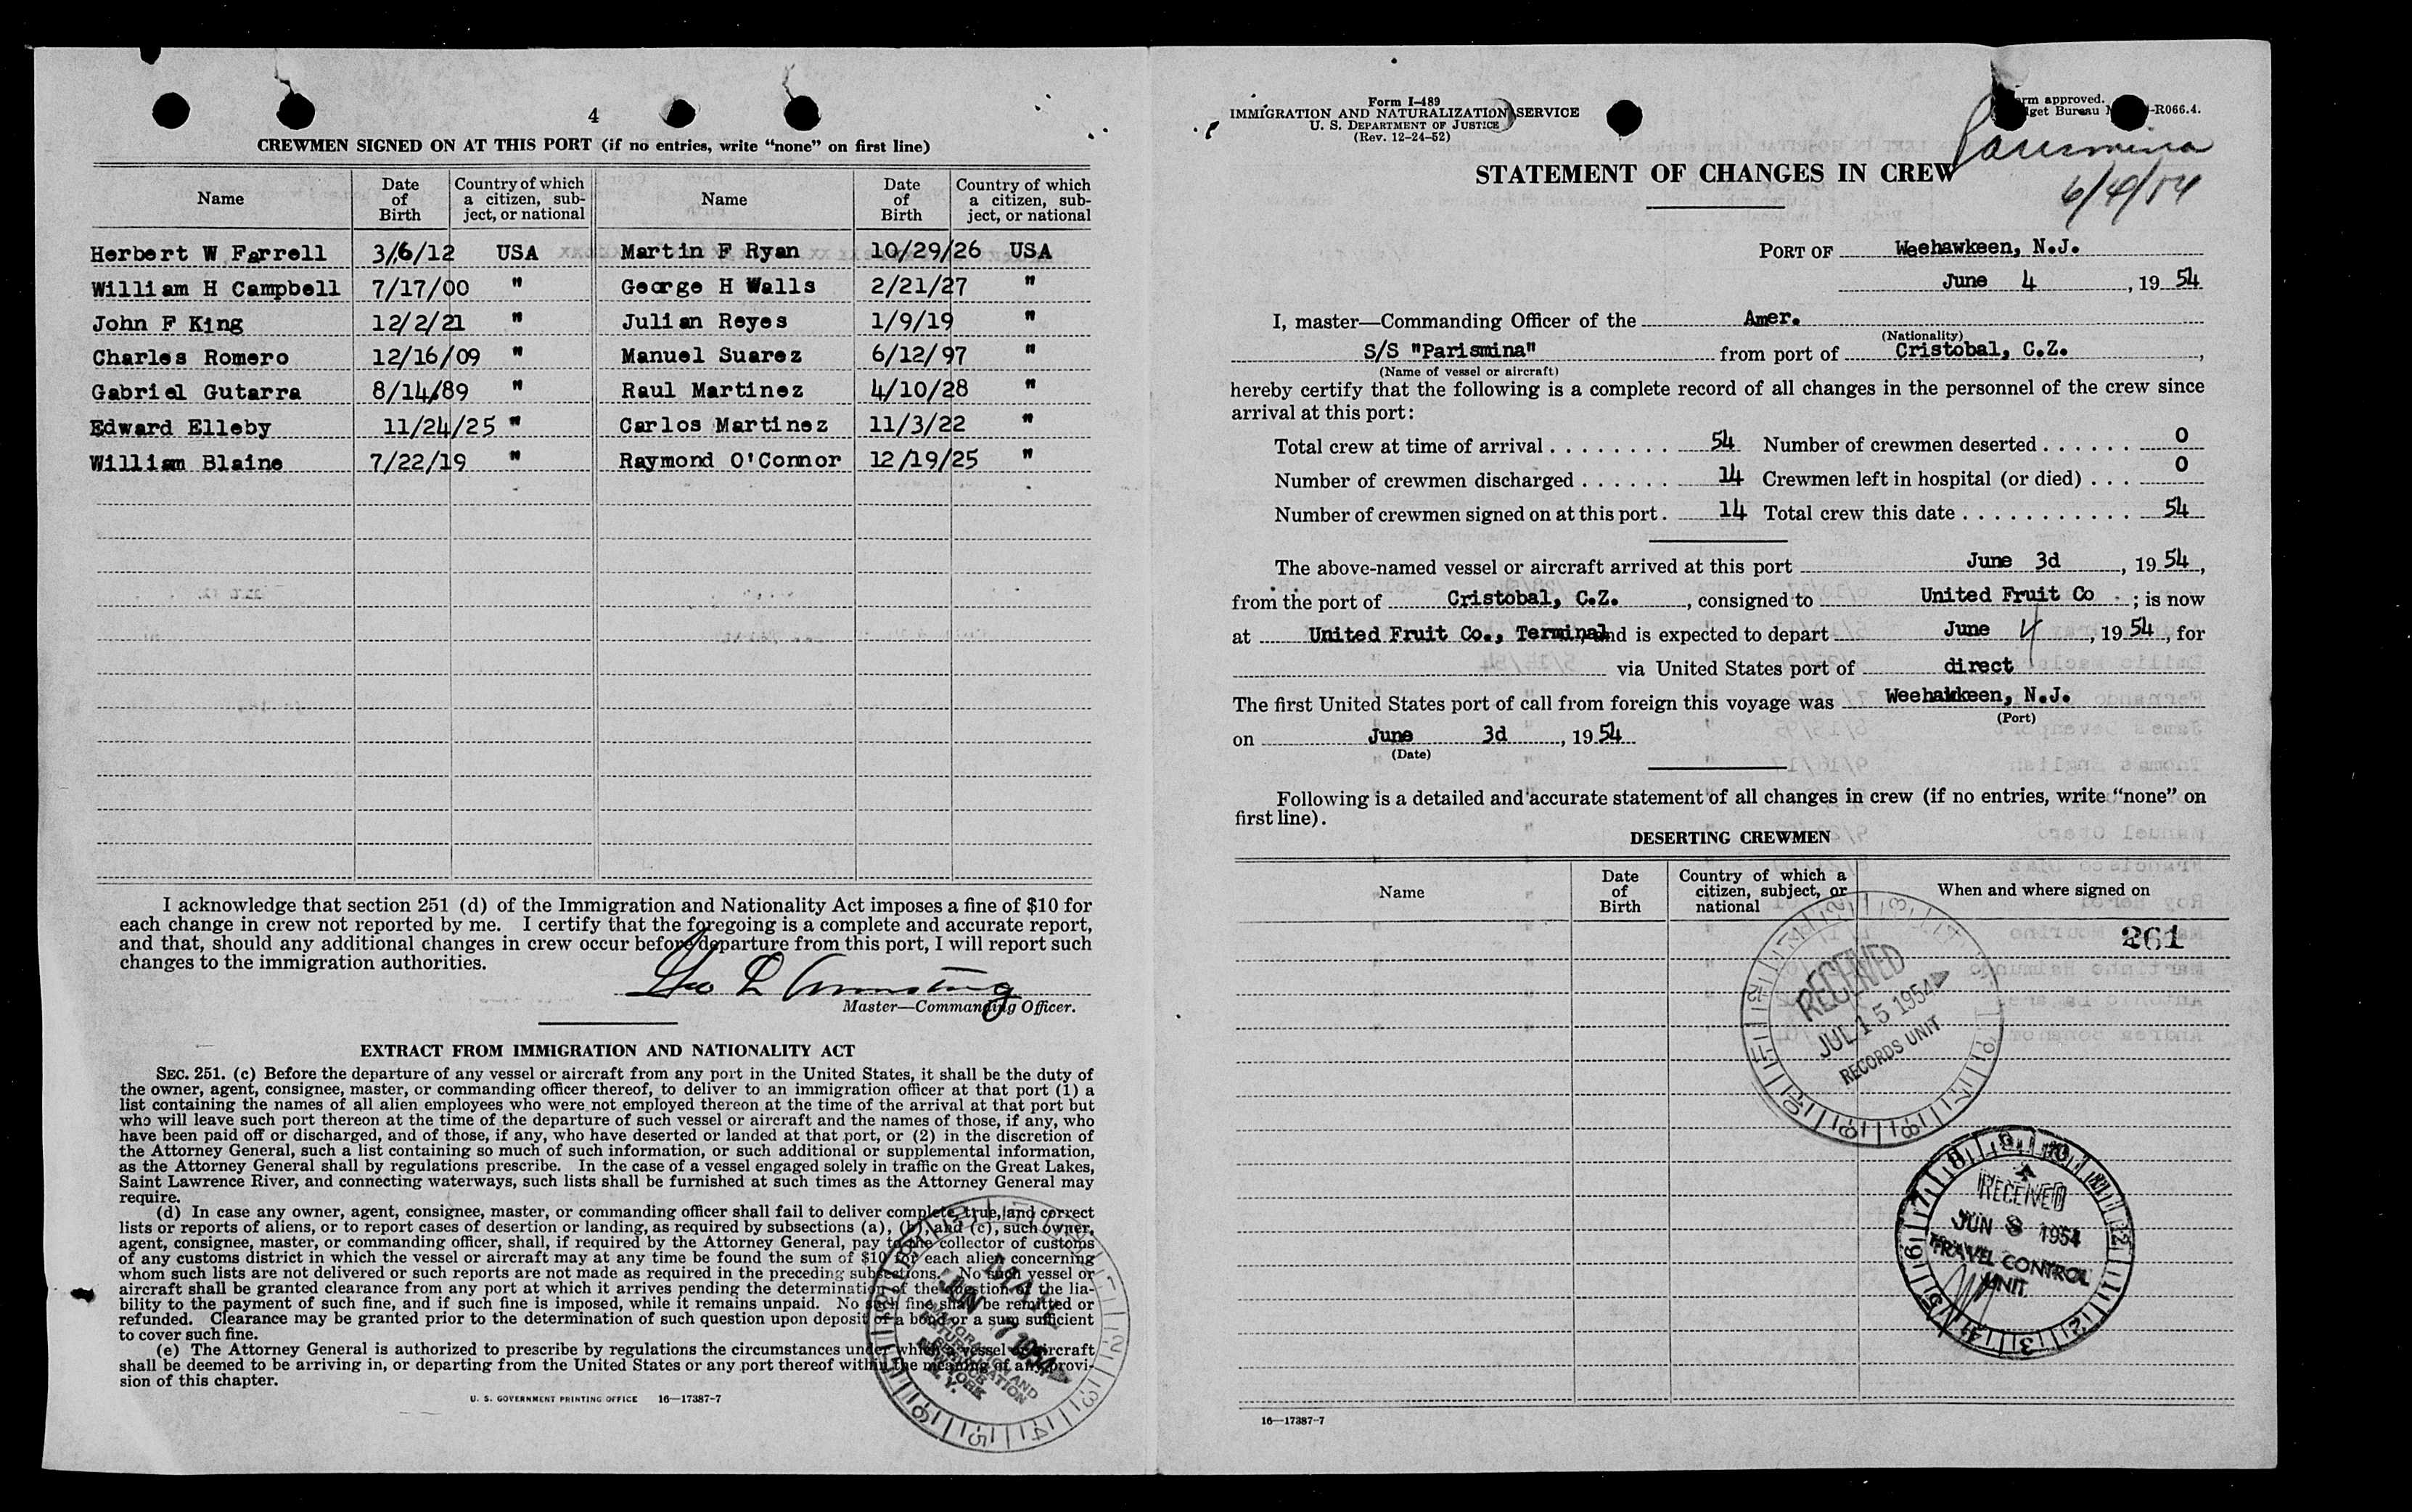 4
CREWMEN SIGNED ON AT THIS PORT (if no entries, write "none" on first line)
Name Date of Birth Country of which a citizen, subject, or national Name Date of Birth Country of which a citizen, subject, or national
Herbert W Farrell 3/6/12 USA Martin F Ryan 10/29/26 USA
William H Campbell 7/17/00 " George H Walls 2/21/27 "
John F King 12/2/21 " Julian Reyes 1/9/19 "
Charles Romero 12/16/09 " Manuel Suarez 6/12/97 "
Gabriel Gutarra 8/14/89 " Raul Martinez 4/10/28 "
Edward Elleby 11/24/25 " Carlos Martinez 11/3/22 "
William Blaine 7/22/19 " Raymond O'Connor 12/19/25 "
I acknowledge that section 251 (d) of the Immigration and Nationality Act imposes a fine of $10 for
each change in crew not reported by me. I certify that the foregoing is a complete and accurate report,
and that, should any additional changes in crew occur before departure from this port, I will report such
changes to the immigration authorities.
Geo L Armstrong
Master—Commanding Officer.
EXTRACT FROM IMMIGRATION AND NATIONALITY ACT
SEC. 251. (c) Before the departure of any vessel or aircraft from any port in the United States, it shall be the duty of
the owner, agent, consignee, master, or commanding officer thereof, to deliver to an immigration officer at that port (1) a
list containing the names of all alien employees who were not employed thereon at the time of the arrival at that port but
who will leave such port thereon at the time of the departure of such vessel or aircraft and the names of those, if any, who
have been paid off or discharged, and of those, if any, who have deserted or landed at that port, or (2) in the discretion of
the Attorney General, such a list containing so much of such information, or such additional or supplemental information,
as the Attorney General shall by regulations prescribe. In the case of a vessel engaged solely in traffic on the Great Lakes,
Saint Lawrence River, and connecting waterways, such lists shall be furnished at such times as the Attorney General may
require.
(d) In case any owner, agent, consignee, master, or commanding officer shall fail to deliver complete, true, and correct
lists or reports of aliens, or to report cases of desertion or landing, as required by subsections (a), (b), and (c), such owner,
agent, consignee, master, or commanding officer, shall, if required by the Attorney General, pay to the collector of customs
of any customs district in which the vessel or aircraft may at any time be found the sum of $10 for each alien concerning
whom such lists are not delivered or such reports are not made as required in the preceding subsections. No such vessel or
aircraft shall be granted clearance from any port at which it arrives pending the determination of the question of the lia-
bility to the payment of such fine, and if such fine is imposed, while it remains unpaid. No such fine shall be remitted or
refunded. Clearance may be granted prior to the determination of such question upon deposit of a bond or a sum sufficient
to cover such fine.
(e) The Attorney General is authorized to prescribe by regulations the circumstances under which a vessel or aircraft
shall be deemed to be arriving in, or departing from the United States or any port thereof within the meaning of any provi-
sion of this chapter.
U. S. GOVERNMENT PRINTING OFFICE 16—17387-7
MAIL
JUN 7 1954
IMMIGRATION AND
NATURALIZATION
NEW YORK
N. Y.
Form I-489
IMMIGRATION AND NATURALIZATION SERVICE
U. S. DEPARTMENT OF JUSTICE
(Rev. 12-24-52)
Form approved.
Budget Bureau -R066.4.
Parismina
6/4/54
STATEMENT OF CHANGES IN CREW
PORT OF Weehawkeen, N.J.
June 4, 1954
I, master—Commanding Officer of the Amer.
(Nationality)
S/S "Parismina" from port of Cristobal, C.Z.,
(Name of vessel or aircraft)
hereby certify that the following is a complete record of all changes in the personnel of the crew since
arrival at this port:
Total crew at time of arrival 54 Number of crewmen deserted 0
Number of crewmen discharged 14 Crewmen left in hospital (or died) 0
Number of crewmen signed on at this port 14 Total crew this date 54
The above-named vessel or aircraft arrived at this port June 3d, 1954,
from the port of Cristobal, C.Z., consigned to United Fruit Co.; is now
at United Fruit Co., Terminal, and is expected to depart June 4, 1954, for
via United States port of direct
The first United States port of call from foreign this voyage was Weehakkeen, N.J.
(Port)
on June 3d, 1954
(Date)
Following is a detailed and accurate statement of all changes in crew (if no entries, write "none" on
first line).
DESERTING CREWMEN
Name Date of Birth Country of which a citizen, subject, or national When and where signed on
261
RECEIVED
JUL 15 1954
RECORDS UNIT
RECEIVED
JUN 8 1954
TRAVEL CONTROL
UNIT
16—17387-7